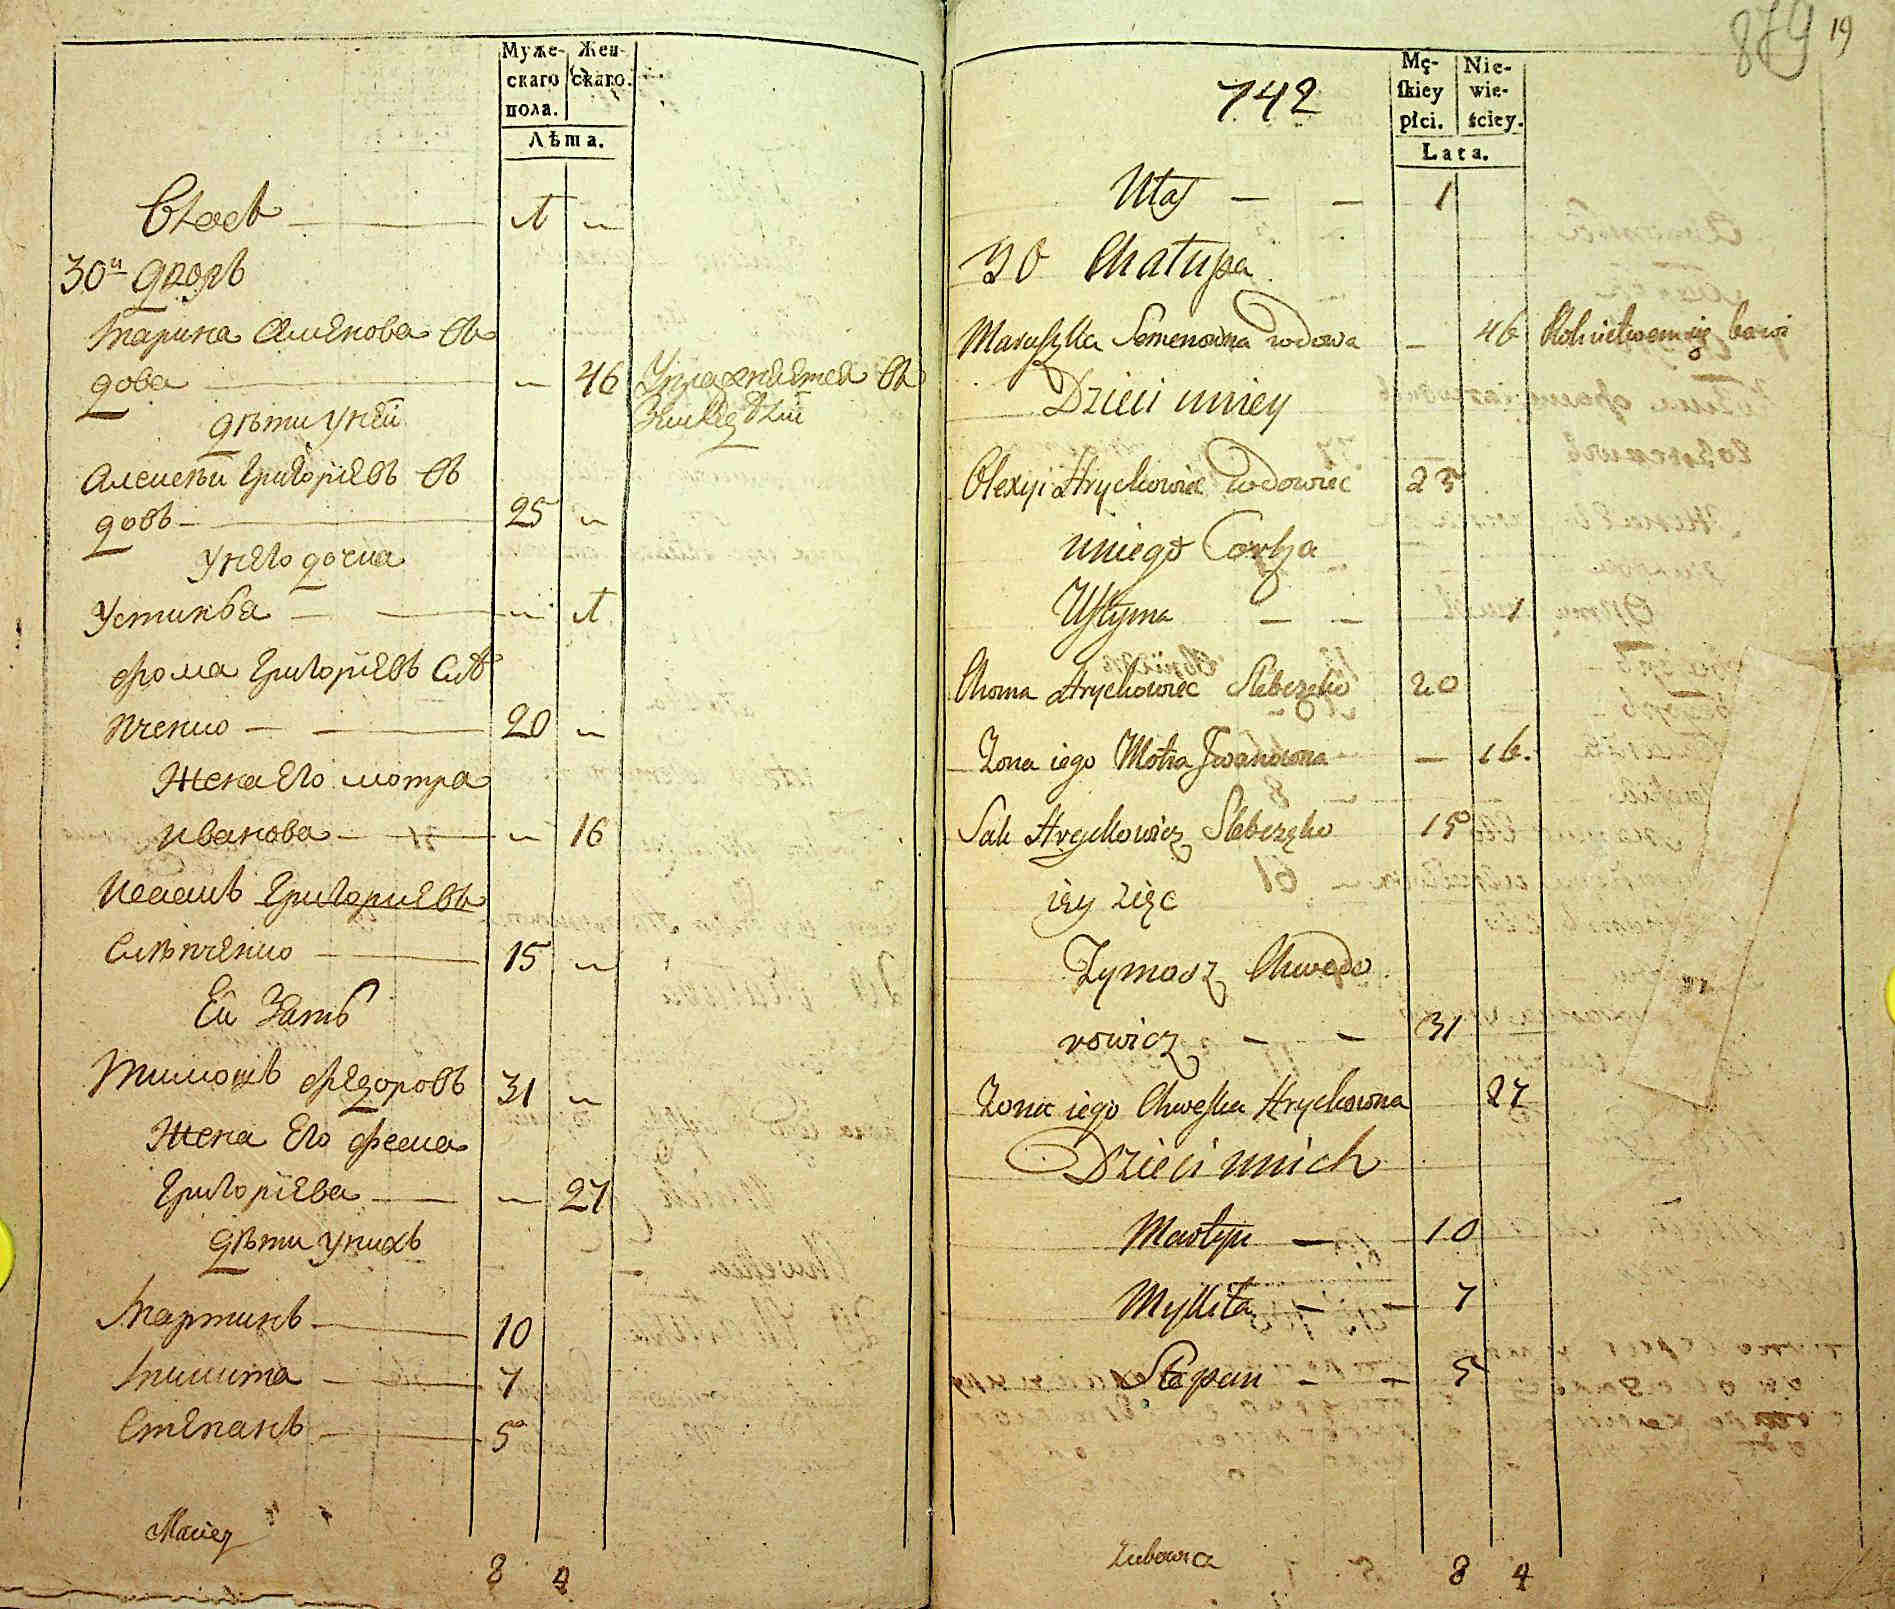 Муже-
скаго
пола.
Жен-
скаго.
Лѣта.
1 —
30й дворъ
Марина Семенова въ
дова — 46
дѣти у ней
Алексѣй Григорїевъ въ
довъ — 25 —
у него дочка
Устинья — — 1
Фома Григорїевъ Слѣ
пченко — 20 —
Жена его мотра
иванова — — 16
Исаакъ Григорїевъ
Слѣпченко — 15 —
Ей Зать
Тимошъ Федоровъ 31 —
Жена его феска
Григорїева — — 27
дѣти у нихъ
Мартинъ — 10
Микита — 7
Степанъ — 5
Maciey
8 4
879 19
742
Mę-
ſkiey
płci.
Nie-
wie-
ściey.
Lata.
Utaſ — — 1
30 Chatupa
Maruſzka Semenowna wdowa — 46
Dzieci uniey
Olexyi Hryckowicz wdowiec 25
uniego Corka
Uſtyma — — 1
Choma Hryckowiec Slebczęko 20
Zona iego Motra Jwanowna — 16.
Sak Hryckowicz Slebczęko 15
iey zięc
Tymosz Chwedo
rowicz — — 31
Zona iego Chweſka Hryckowna 27
Dzieci unich
Martyn — 10
Mykita — — 7
Stepan — — 5
Zubowa
8 4